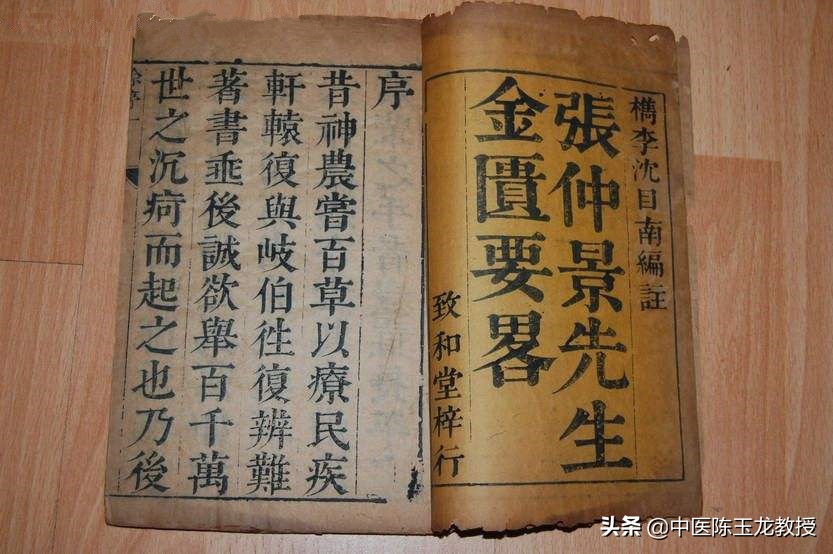 檇李沈目南編註
張仲景先生
金匱要畧
致和堂梓行
序
昔神農嘗百草以療民疾
軒轅復與岐伯徃復辨難
著書垂後誠欲舉百千萬
世之沉疴而起之也乃後
头条 @中医陈玉龙教授